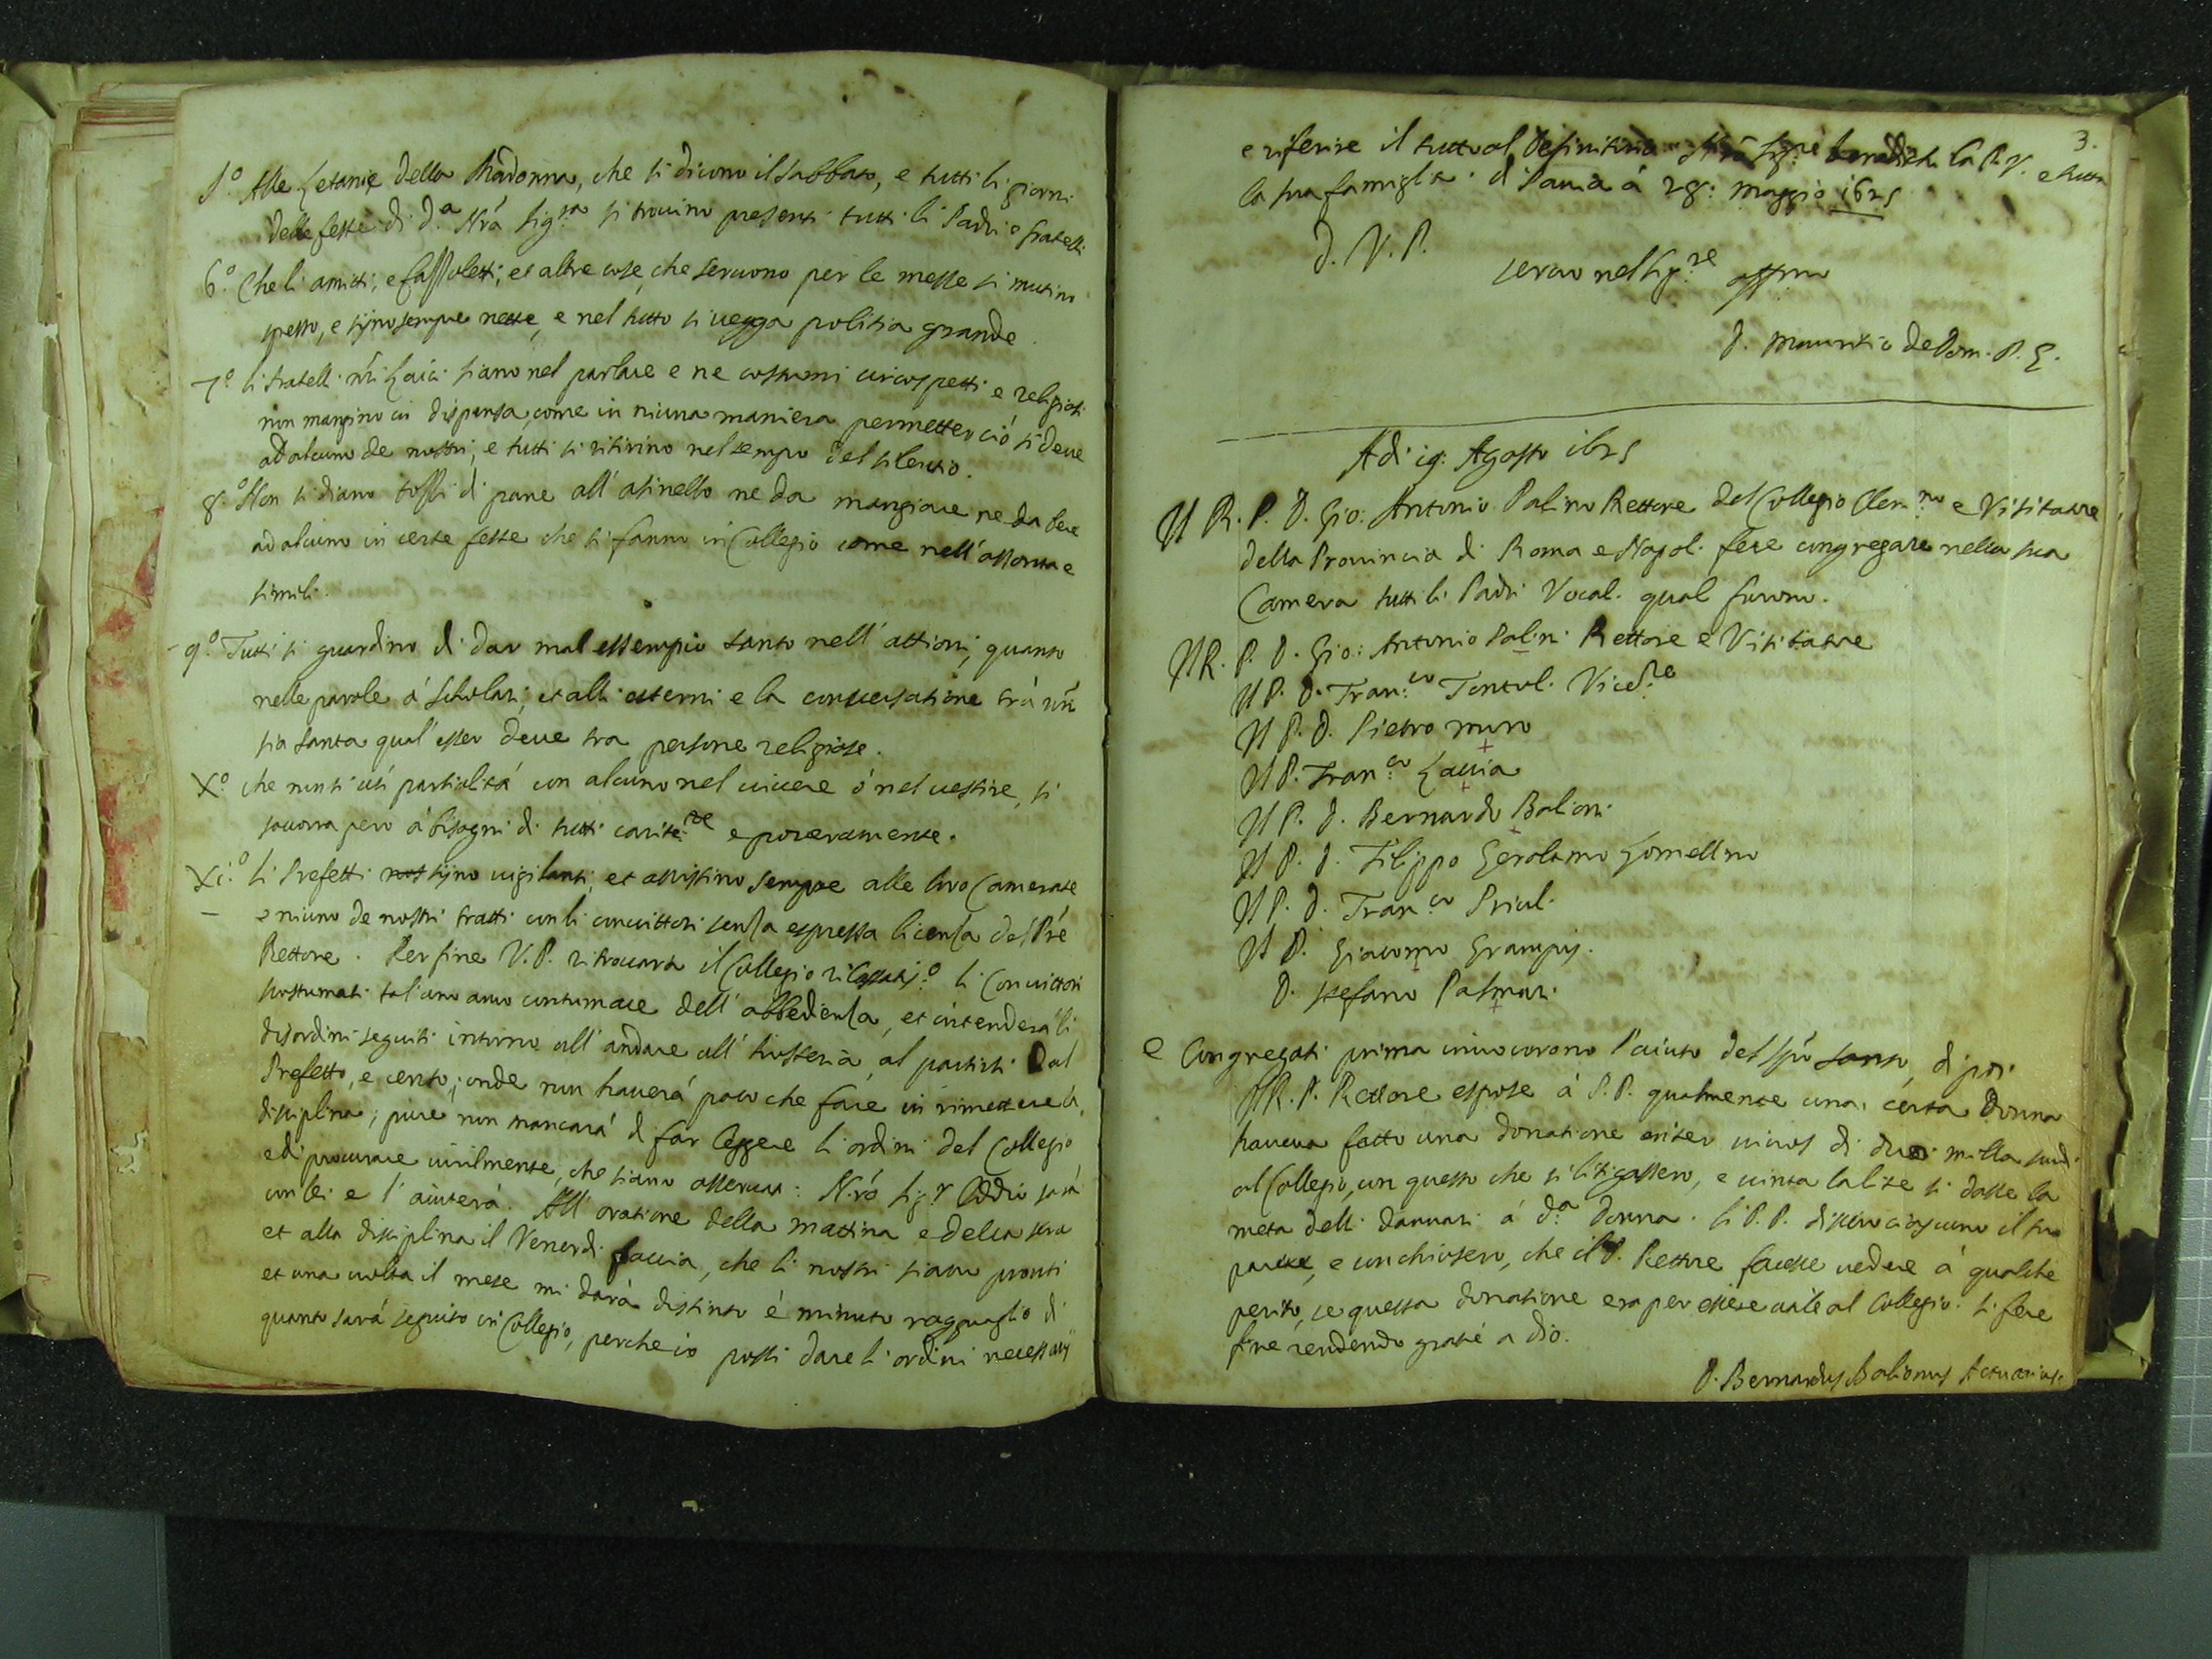 5.º Alle Letanie della Madonna, che si dicono il sabbato, e tutti li giorni
delle feste di d.ª Nrá sig.ra si trovino presenti tutti li Padri e fratelli
6.º Che li amitti, e fassoletti, et altre cose, che servono per le messe si mutino
spesso, e sijno sempre nette, e nel tutto si uegga politia grande.
7º li fratelli nr̃i Laici siano nel parlare e ne costumi circospetti e religiosi
non mangino in dispensa, come in niuna maniera permetter ciò si deue
ad alcuno de nostri, e tutti si ritirino nel tempo del silentio.
8.º Non si diano tossi di pane all' asinello ne da mangiare ne da bere
ad alcuno in certe feste che si fanno in Collegio come nell' assonta e
simili.
9.º Tutti si guardino di dar mal essempio tanto nell' attioni, quanto
nelle parole á scholari, et alli esterni e la conuersatione trá nr̃i
sia santa qual' esser deue tra persone religiose.
Xº che non si usi partialitá con alcuno nel uiuere ó nel uestire, si
soccorra pero á bisogni di tutti carite.re e poueramente.
Xi.º li Prefetti sijno uigilanti, et assistino sempre alle loro Camerate
e niuno de nostri tratti con li conuittori senza espressa licenza del Pré
Rettore. Per fine V.P. ritrouará il Collegio rilassatis.º li Conuittori
scostumati tal'uno anco contumace dell' obbedienza, et intenderá li
disordini seguiti intorno all' andare all' hosteria, al partirsi Dal
Prefetto, e cento; onde non hauerá poco che fare in rimettere la
disciplina; pure non mancará di far leggere li ordini del Collegio
e di procurare uirilmente, che siano osseruati: N.ró sig.r Iddio sará
con lei e l' aiuterá. All' oratione della mattina e della sera
et alla disciplina il Venerdi faccia, che li nostri siano pronti
et una uolta il mese mi dará distinto é minuto ragguaglio di
quanto sará seguito in Collegio, perche io possi dare li ordini necessarij
3.
e riferire il tutto al Definitorio Nró sig.re benedichi la P.V. e tutta
la sua famiglia. di Pauia á 28: maggio 1625
D. V. P.
seruo nel sig.re affmo
D. Mauritio De Dom. P. G.
Adi 19: Agosto 1625
Il R. P. D. Gio: Antonio Palino Rettore del Collegio Clem.no e Visitatore
della Prouincia di Roma e Napol. fece congregare nella sua
Camera tutti li Padri Vocali quali furono.
Il R. P. D. Gio: Antonio Palini Rettore e Visitatore
Il P. D. Fran.co Tontol. Vice R.re
Il P. D. Pietro muro
Il P. Fran.co Lauia
Il P. D. Bernardo Balioni
Il P. D. Filippo Gerolamo Lomellino
Il P. D. Fran.co Priul.
Il P. Giacomo Grampis.
D. stefano Palmari.
e Congregati prima inuocorono l'aiuto del Spó santo, di poi
Il R. P. Rettore espose á P.P. qualmente una certa Donna
haueua fatto una donatione inter uiuos di due milla scudi
al Collegio, con questo che si litigassero, e uinta la lite si dasse la
meta delli dannari á d.ª Donna. li P.P. dissero ciascuno il suo
parere, e conchiusero, che il P. Rettore facesse uedere á qualche
perito, se questa donatione era per essere utile al Collegio. si fece
fine rendendo gratie a dio.
D. Bernardus Balionus Actuarius.